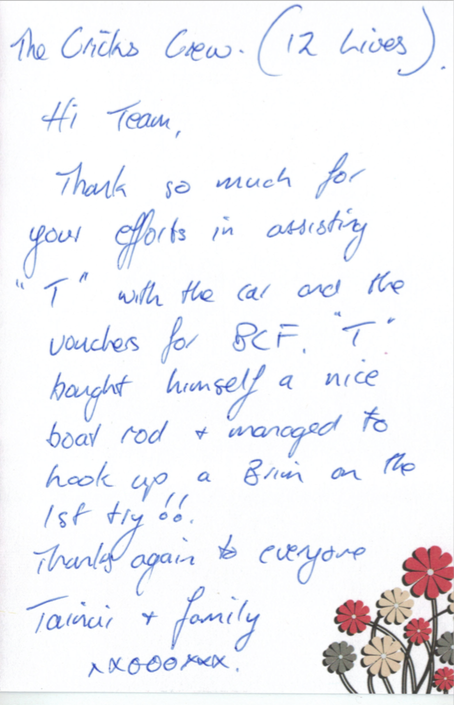 The Cricks Crew. (12 Lives).
Hi Team,
Thank so much for
your efforts in assisting
"T" with the car and the
vouchers for BCF. "T"
bought himself a nice
boat rod + managed to
hook up a Brim on the
1st try!!.
Thanks again to everyone
Tainui + family
xxoooxxx.